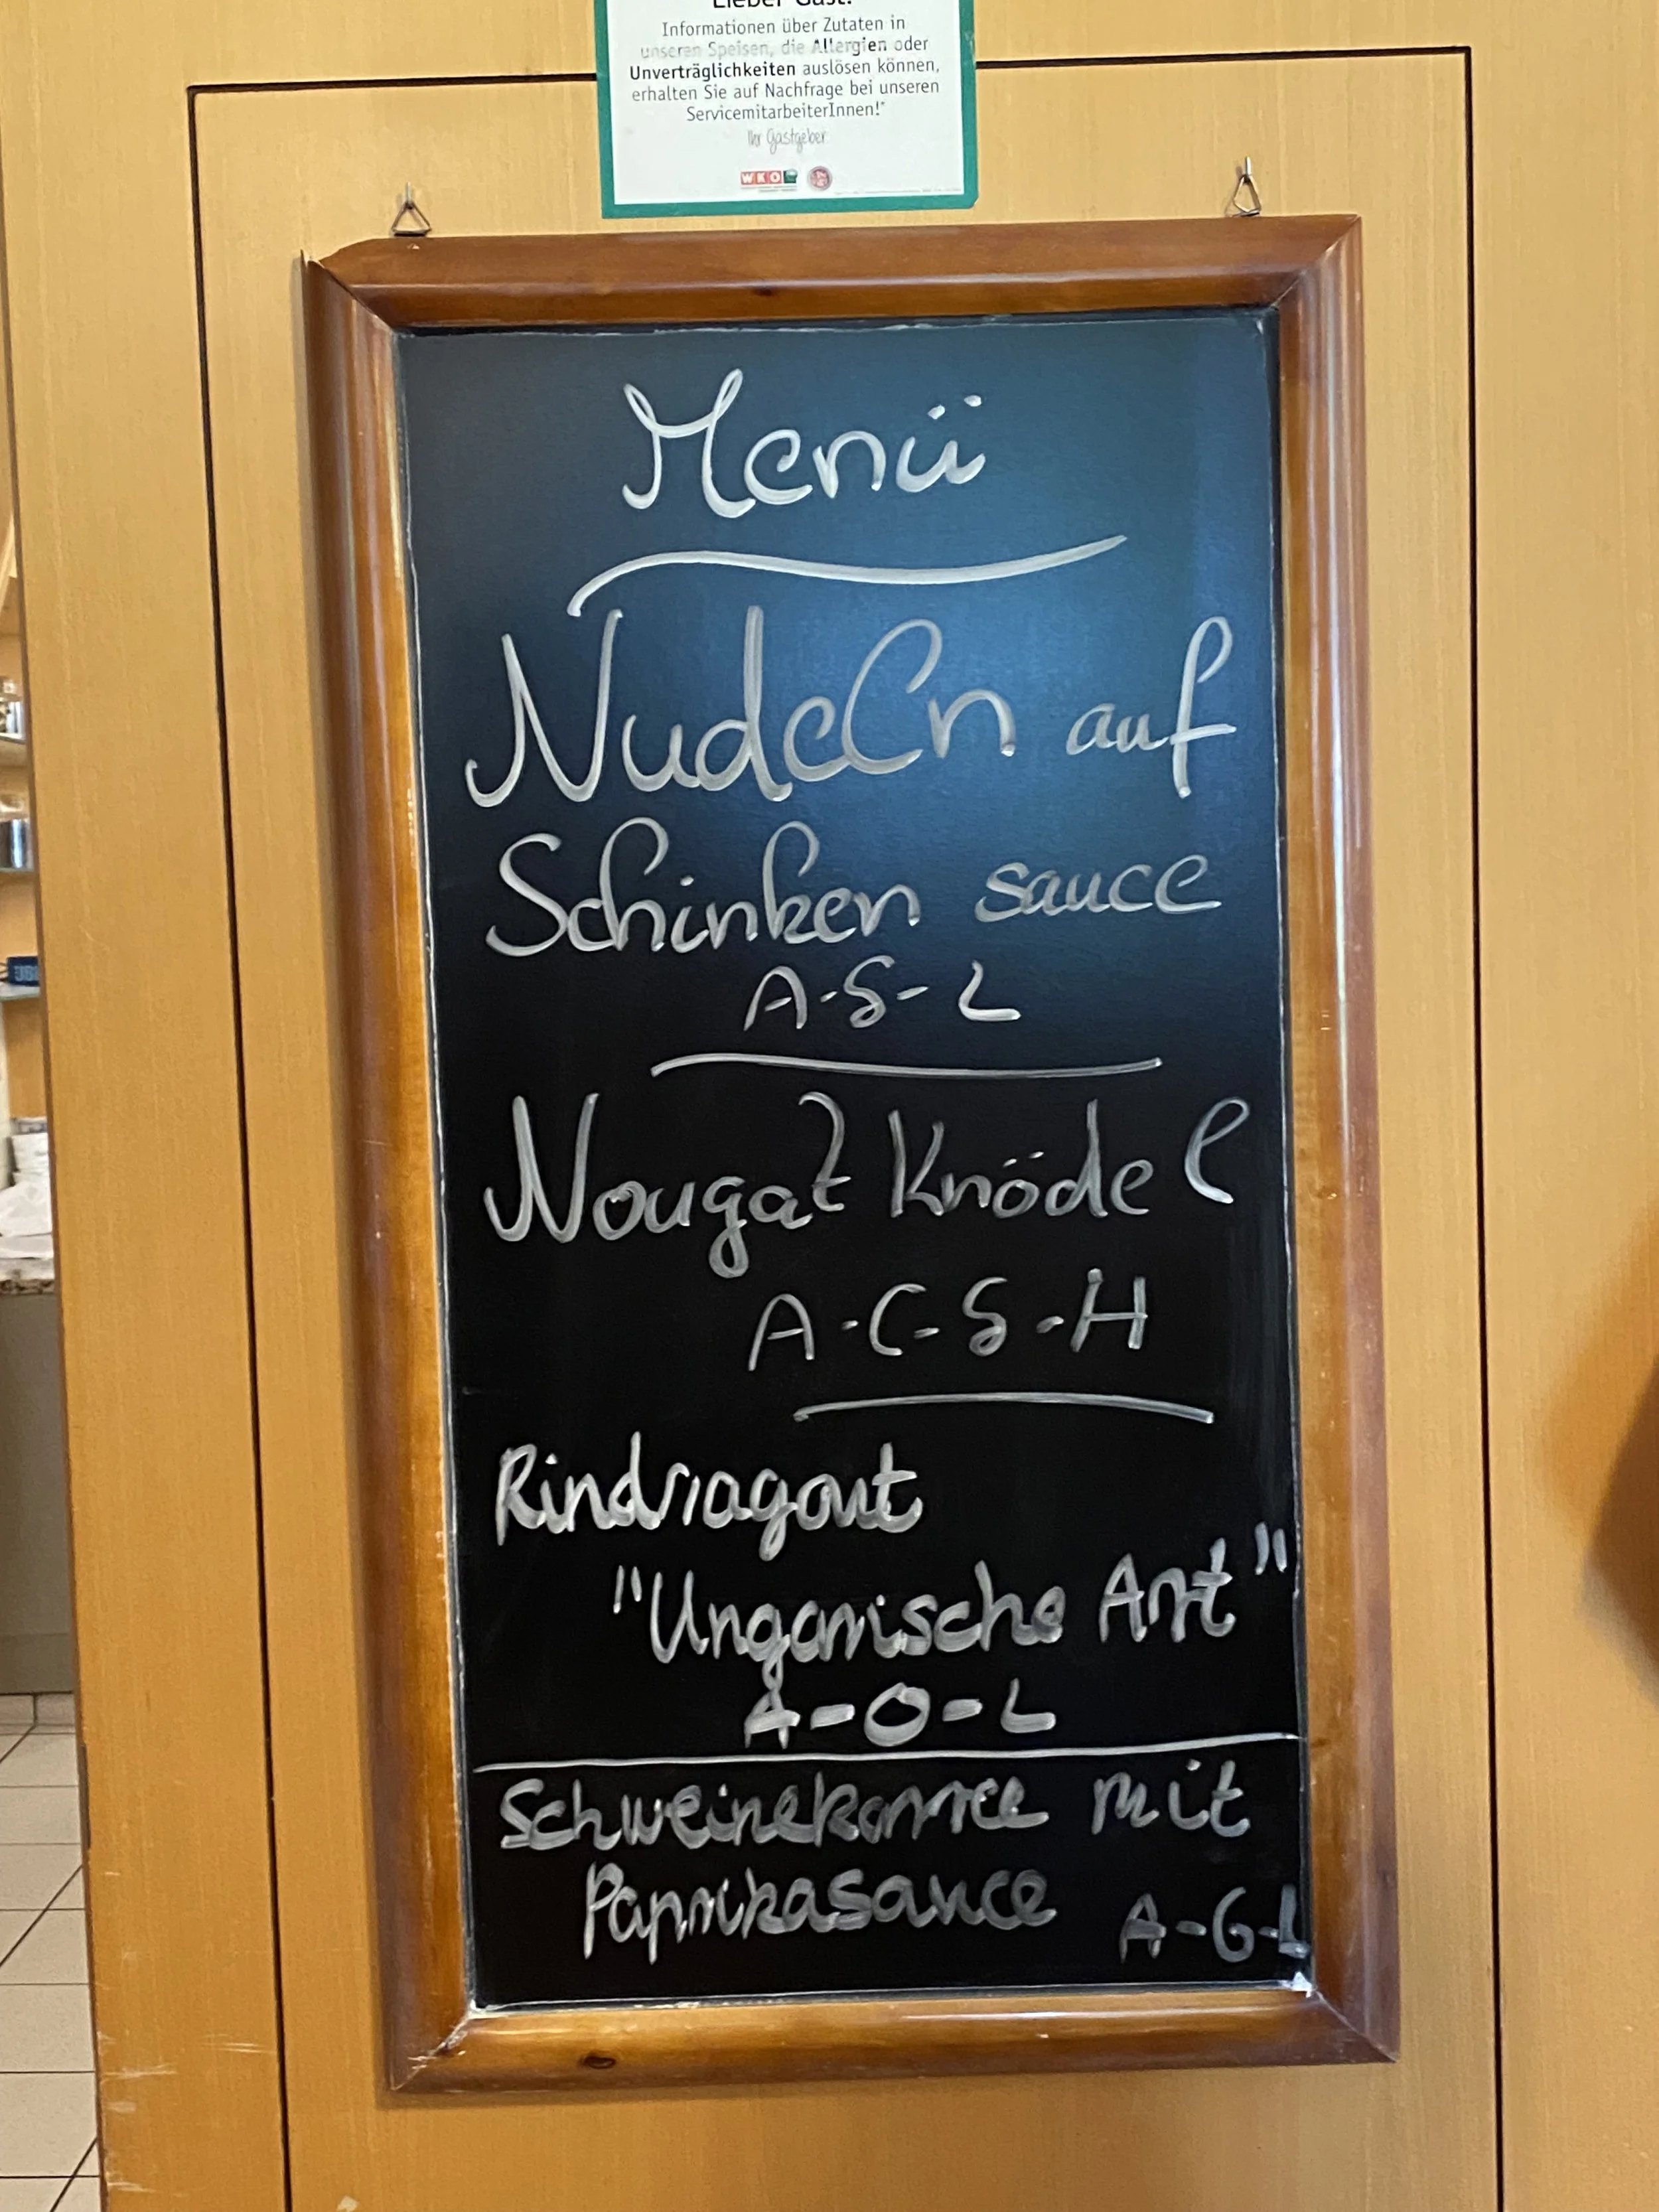 Lieber Gast!
Informationen über Zutaten in
unseren Speisen, die Allergien oder
Unverträglichkeiten auslösen können,
erhalten Sie auf Nachfrage bei unseren
ServicemitarbeiterInnen!"
Ihr Gastgeber
WKO
Menü
Nudeln auf
Schinken sauce
A-G-L
Nougat Knödel
A-C-G-H
Rindsragout
"Ungarische Art"
A-O-L
Schweinekarree mit
Paprikasauce A-G-L